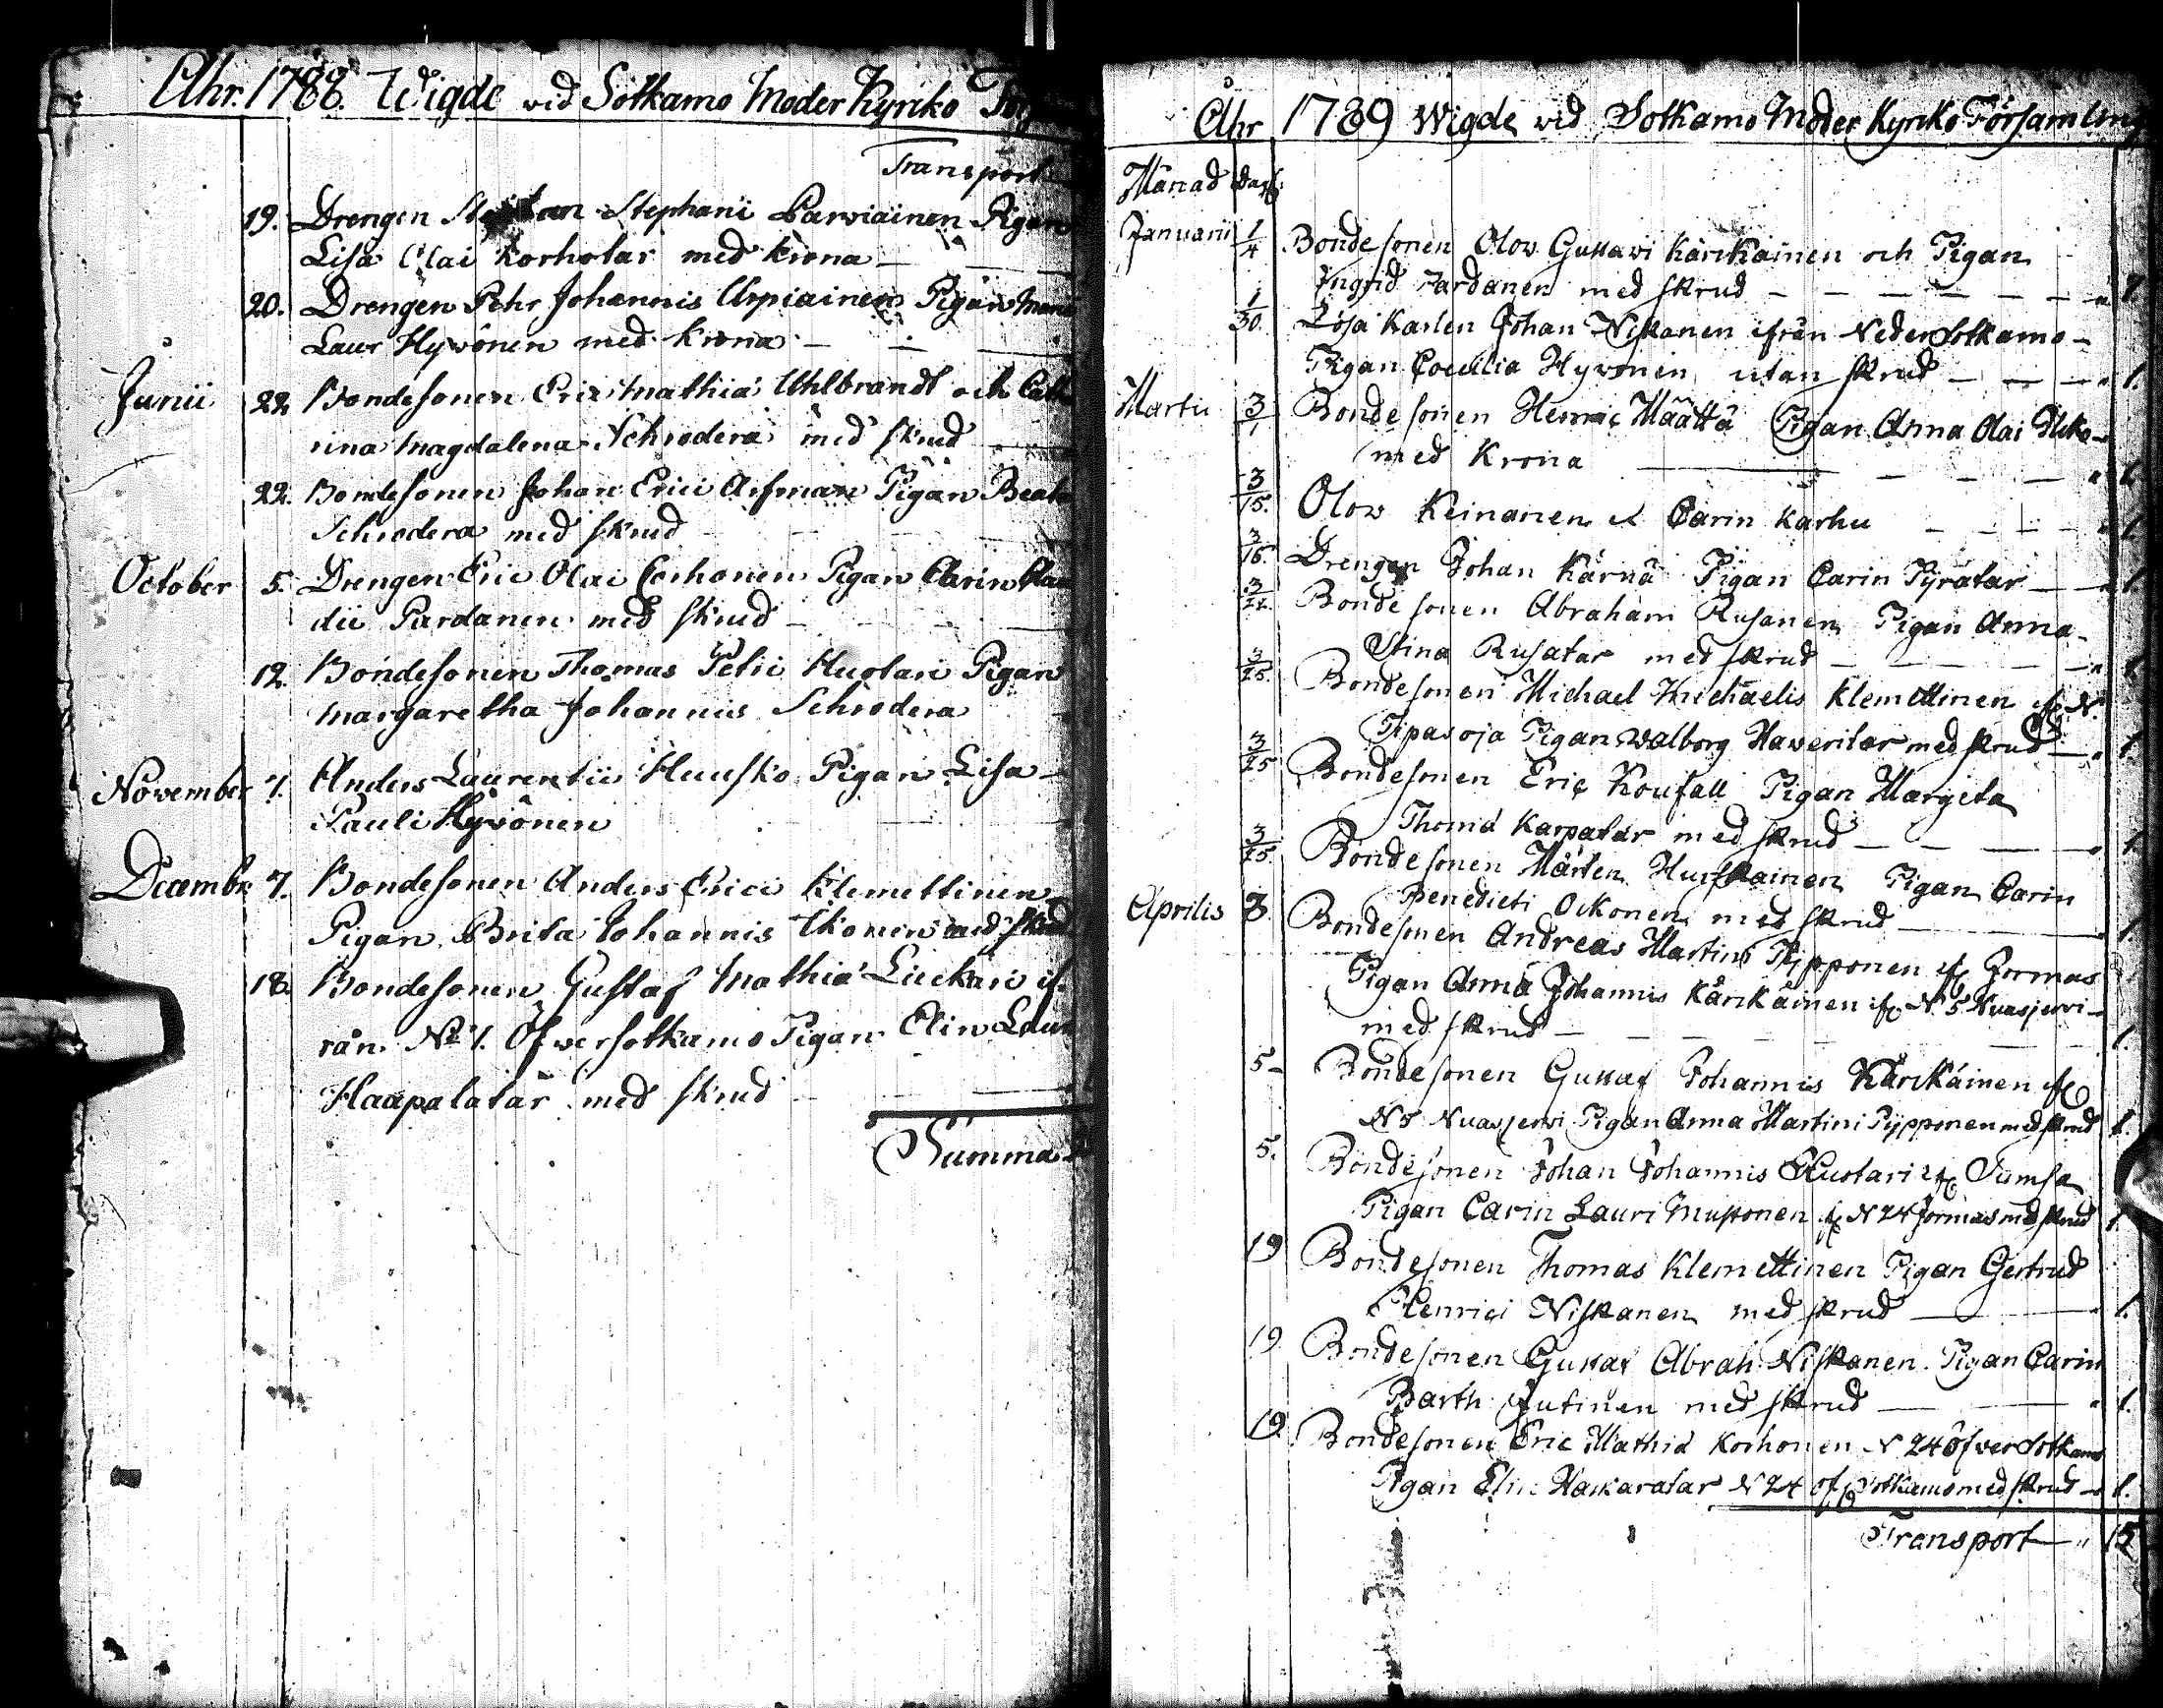 Åhr. 1788. Wigde vid Sotkamo Moder Kyrko
Transport
19. Drengen Stephan Stephani Parviainen Pigan
Lisa Olai Korhotar med krona
20. Drengen Pehr Johannis Urpiainen Pigan Maria
Laur Hyvönen med krona
Junii 22. Bondesonen Eric Mathiæ Uhlbrandt och Catha
rina Magdalena Schrodera med skrud
22. Bondesonen Johan Erici Aisman Pigan Beata
Schrodera med skrud
October 5. Drengen Eric Olai Korhonen Pigan Carin Clau
dii Pardanen med skrud
12. Bondesonen Thomas Petri Huotari Pigan
Margaretha Johannis Schrodera
November 7. Anders Laurentii Huusko Pigan Lisa
Pauli Hyvönen
Decembr. 7. Bondesonen Anders Erici Klemettinen
Pigan Brita Johannis Ikonen med skrud
18. Bondesonen Gustaf Mathiæ Liekari if
rån No 1. Öfversotkamo Pigan Elin Laur
Haapalatar med skrud
Summa
Åhr 1789 Wigde vid Sotkamo Moder Kyrko Församling
Månad Dag
Januarii 1/4 Bondesonen Olov Gustavi Kärckäinen och Pigan
Ingrid Pardanen med skrud 1.
1/30. Lösa Karlen Johan Niskanen ifrån Neder Sotkamo
Pigan Coecilia Hyvönen utan skrud 1.
Martii 3/1 Bondesonen Henric Määttä Pigan Anna Olai
med Krona 1.
3/15. Olov Keinanen et Carin Karhu 1.
3/16. Drengen Johan Kärnä Pigan Carin Pyrätar 1.
3/22. Bondesonen Abraham Rusanen Pigan Anna
Stina Rusatar med skrud 1.
3/25. Bondesonen Michael Michaelis Klemettinen if N.
Tipasoja Pigan Walborg Haveritar med skrud 1.
3/25 Bondesonen Eric Koufall Pigan Margeta
Thomæ Karpatar med skrud 1.
3/25. Bondesonen Mårten Hurskainen Pigan Carin
Benedicti Ockonen med skrud 1.
Aprilis 3. Bondesonen Andreas Martini Pypponen if Jormas
Pigan Anna Johannis Kärckäinen if N. 5 Nuasjervi
med skrud 1.
5 Bondesonen Gustaf Johannis Kärckäinen if
N 5 Nuasjervi Pigan Anna Martini Pypponen med skrud 1.
5. Bondesonen Johan Johannis Huotari if Sumsa
Pigan Carin Lauri Mustonen if N 24 Jormas med skrud 1.
19 Bondesonen Thomas Klemettinen Pigan Gertrud
Henrici Niskanen med skrud 1.
19 Bondesonen Gustaf Abrah. Niskanen. Pigan Carin
Barth: Jutinen med skrud 1.
19. Bondesonen Eric Mathiæ Korhonen N 24 Öfver Sotkamo
Pigan Elin Haikaratar N 24 Öf Sotkamo med skrud 1.
Transport 15